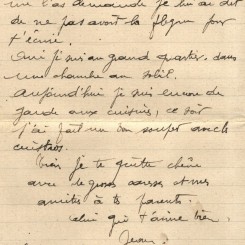 me l'as demandé je lui ai dit
de ne pas avoir la flegme pour
t'écrire.
Oui je suis au grand quartier dans
une chambre au soleil.
aujourd'hui je suis encore de
garde aux cuisines, ce soir
j'ai fait un bon souper avec le
cuistots.
Vois je te quitte chère
avec de gros et mes
amitiés à tes parents.
celui qui t'aime bien
Jean